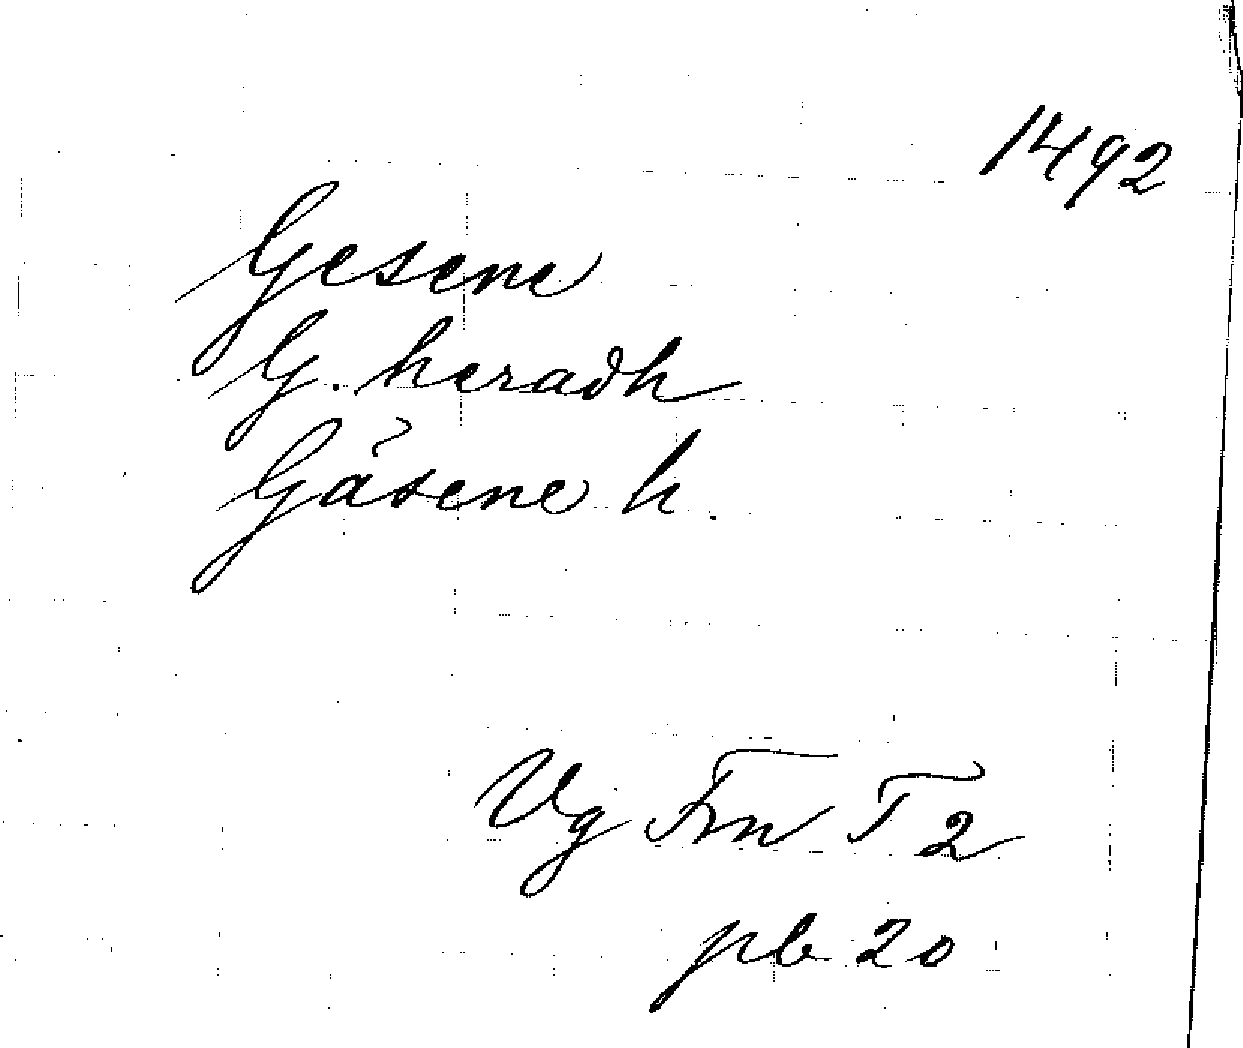 1492
Gesene
G. heradh
Gäsene h.
Vg Frn T 2
pb 20